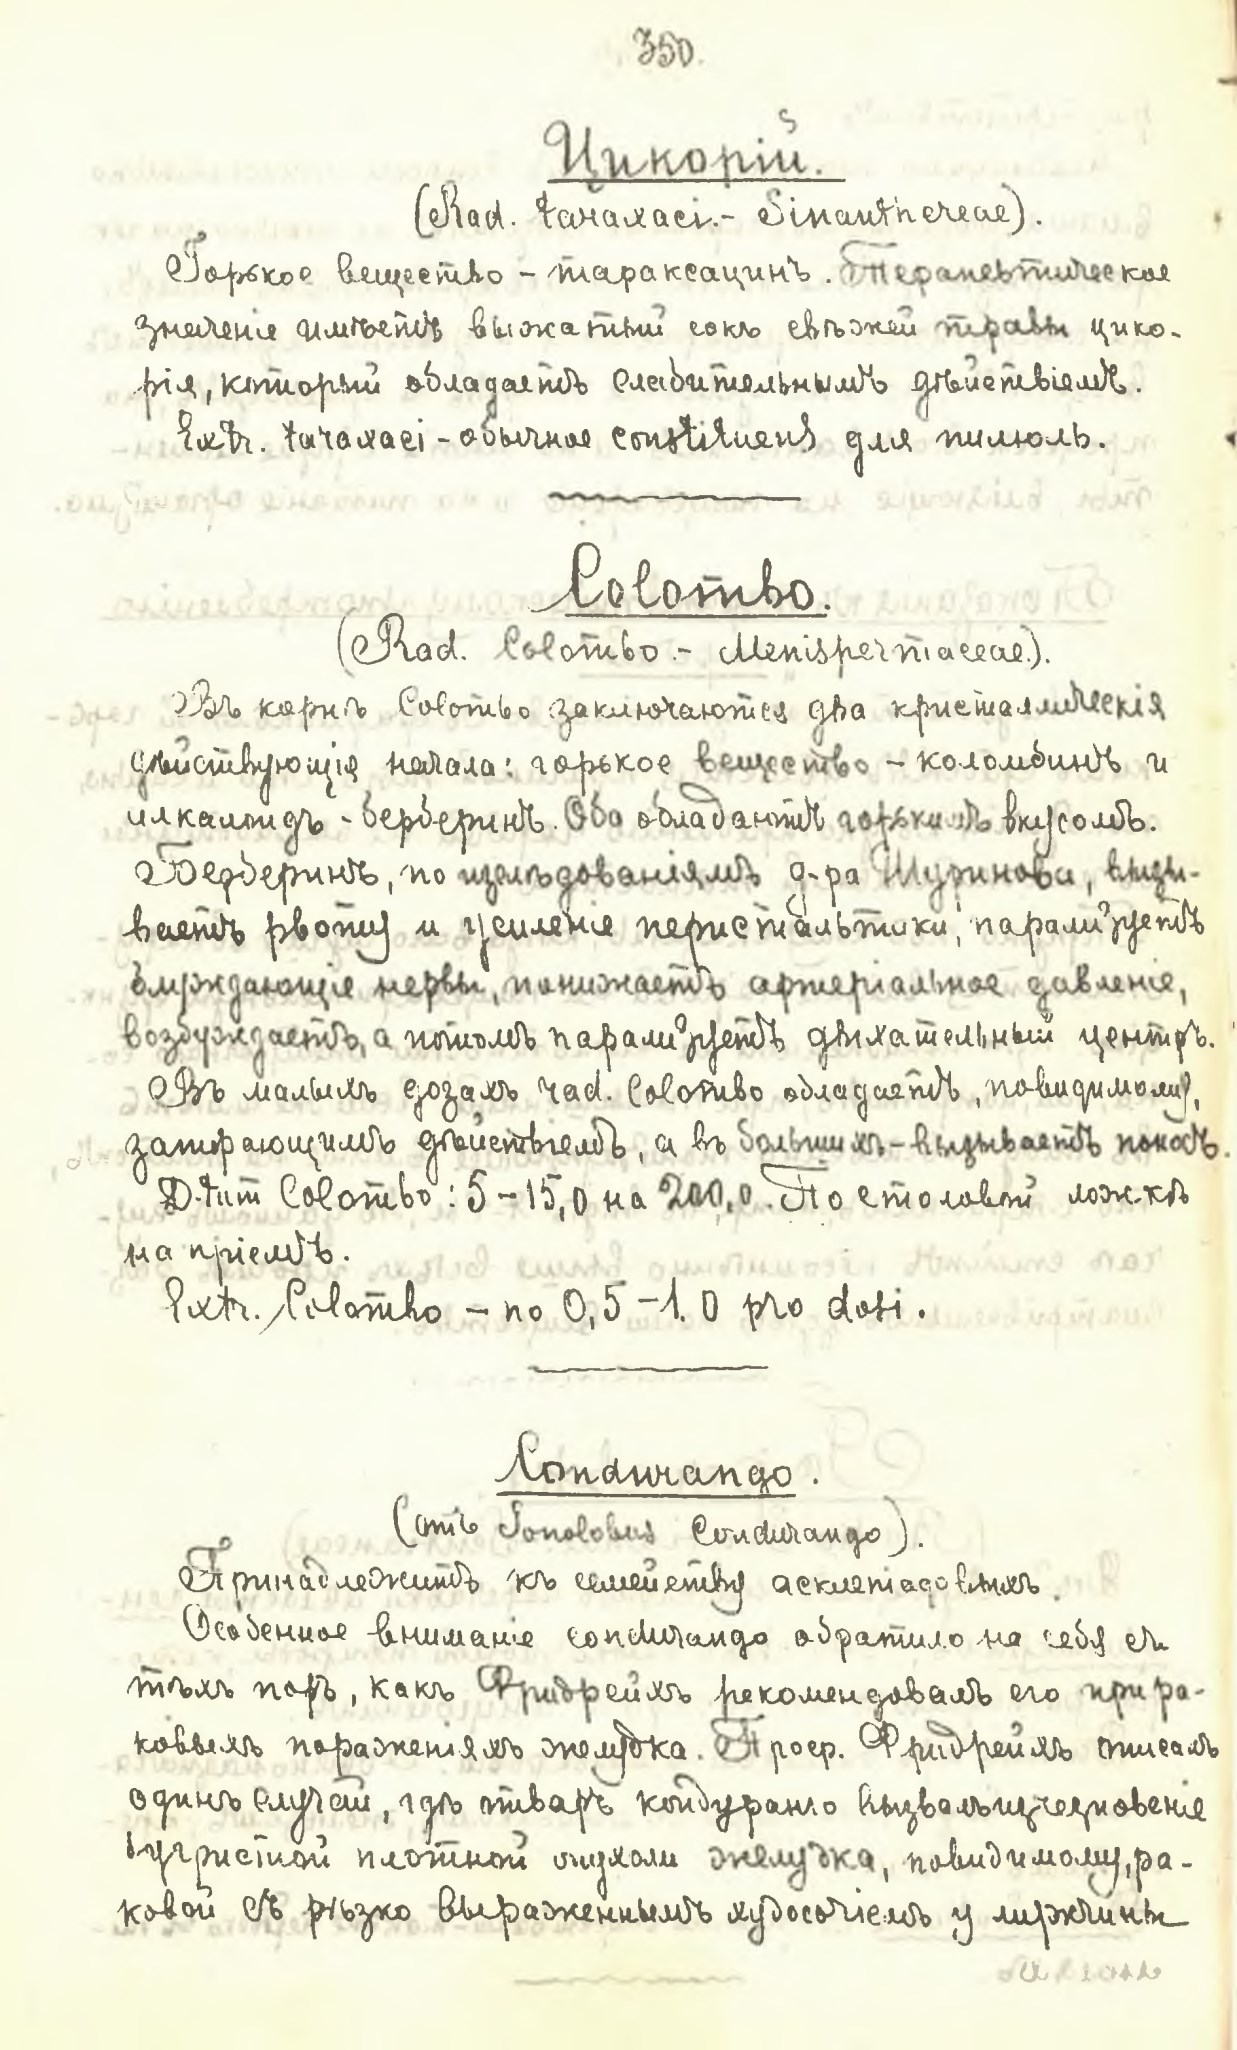 350.
Цикорій.
(Rad. taraxaci. - Sinanthereae).
Горькое вещество - тараксацинъ. Терапевтическое
значеніе имѣетъ выжатый сокъ свѣжей травы цико-
рія, который обладаетъ слабительнымъ дѣйствіемъ.
Extr. taraxaci - обычное constituens для пилюль.
Colombo.
(Rad. Colombo. - Menispermaceae.).
Въ корнѣ Colombo заключаются два кристаллическія
дѣйствующія начала: горькое вещество - коломбинъ и
алкалоидъ - берберинъ. Оба обладаютъ горькимъ вкусомъ.
Берберинъ, по изслѣдованіямъ д-ра Шуринова, вызы-
ваетъ рвоту и усиленіе перистальтики, парализуетъ
блуждающіе нервы, понижаетъ артеріальное давленіе,
возбуждаетъ, а потомъ парализуетъ дыхательный центръ.
Въ малыхъ дозахъ rad. Colombo обладаетъ, повидимому,
запирающимъ дѣйствіемъ, а въ большихъ - вызываетъ поносъ.
D-tum Colombo: 5-15,0 на 200,0. По столовой ложкѣ
на пріемъ.
Extr. Colombo - по 0,5-1.0 pro dosi.
Condurango.
(отъ Gonolobus Condurango).
Принадлежитъ къ семейству асклепіадовыхъ.
Особенное вниманіе condurango обратило на себя съ
тѣхъ поръ, какъ Фридрейхъ рекомендовалъ его при ра-
ковыхъ пораженіяхъ желудка. Проф. Фридрейхъ описалъ
одинъ случай, гдѣ отваръ кондуранго вызвалъ исчезновеніе
бугристой плотной опухоли желудка, повидимому, ра-
ковой съ рѣзко выраженнымъ худосочіемъ у мужчины